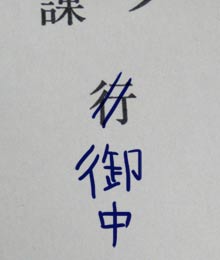 課
行
御中